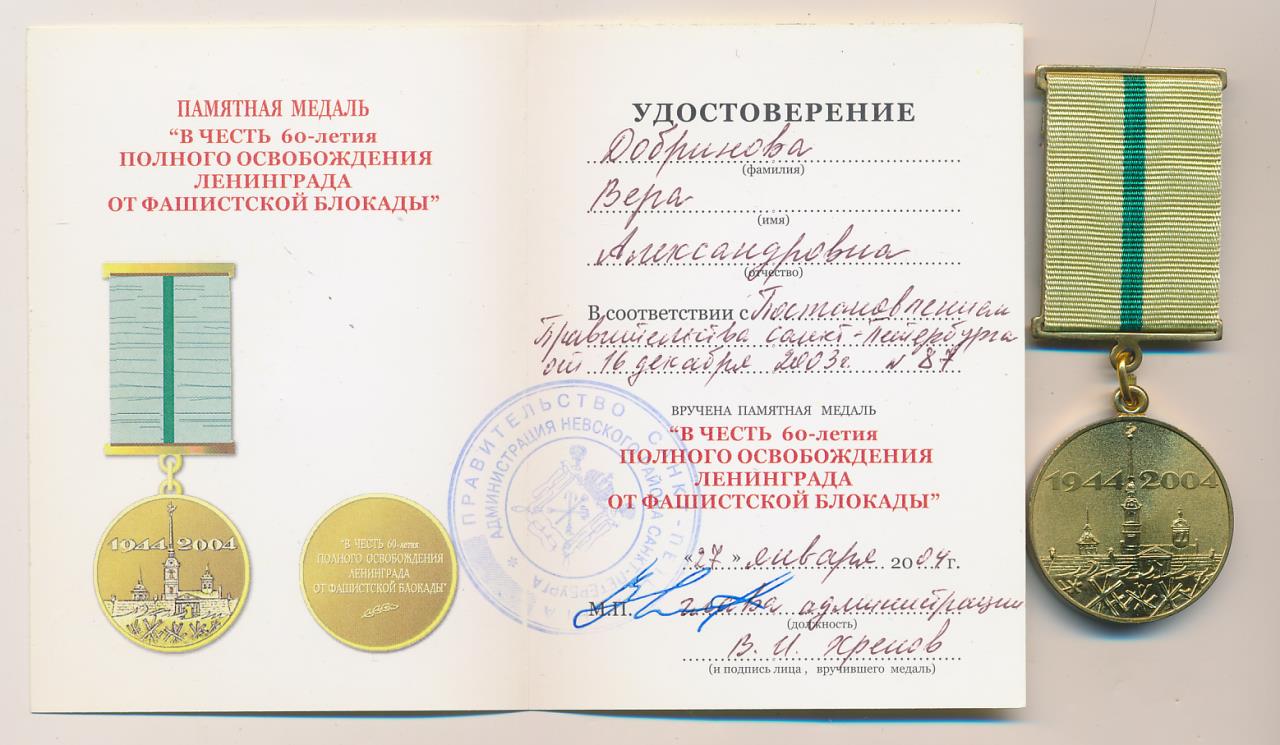 ПАМЯТНАЯ МЕДАЛЬ
“В ЧЕСТЬ 60-летия
ПОЛНОГО ОСВОБОЖДЕНИЯ
ЛЕНИНГРАДА
ОТ ФАШИСТСКОЙ БЛОКАДЫ”
1944 2004
“В ЧЕСТЬ 60-летия
ПОЛНОГО ОСВОБОЖДЕНИЯ
ЛЕНИНГРАДА
ОТ ФАШИСТСКОЙ БЛОКАДЫ”
УДОСТОВЕРЕНИЕ
Добринова
(фамилия)
Вера
(имя)
Александровна
(отчество)
В соответствии с Постановлением
Правительства Санкт-Петербурга
от 16 декабря 2003г. № 87
ВРУЧЕНА ПАМЯТНАЯ МЕДАЛЬ
“В ЧЕСТЬ 60-летия
ПОЛНОГО ОСВОБОЖДЕНИЯ
ЛЕНИНГРАДА
ОТ ФАШИСТСКОЙ БЛОКАДЫ”
“27” января 2004г.
М.П. глава администрации
(должность)
В. И. Хрепов
(и подпись лица, вручившего медаль)
ПРАВИТЕЛЬСТВО САНКТ-ПЕТ
АДМИНИСТРАЦИЯ НЕВСКОГО РАЙОНА САНКТ-ПЕТЕРБУРГА
1944 2004